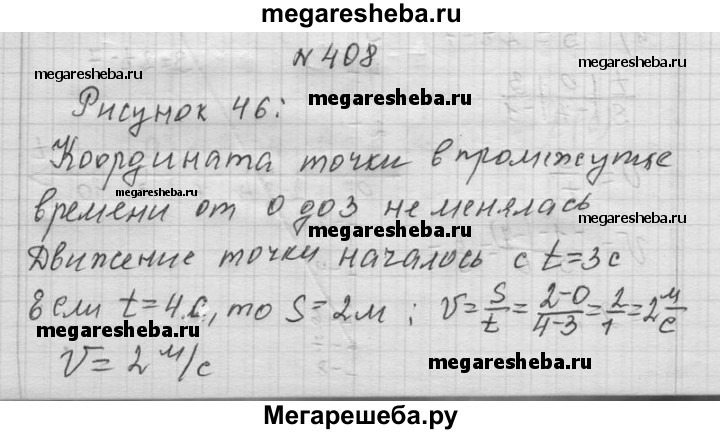 megaresheba.ru
№ 408
megaresheba.ru
megaresheba.ru
Рисунок 46:
megaresheba.ru
Координата точки в промежутце
megaresheba.ru
времени от 0 до 3 не менялась
megaresheba.ru
Движение точки началось с t=3с
Если t=4с, то S=2м; V=S/t=(2-0)/(4-3)=2/1=2 м/с
megaresheba.ru
megaresheba.ru
V=2 м/с
Мегарешеба.ру